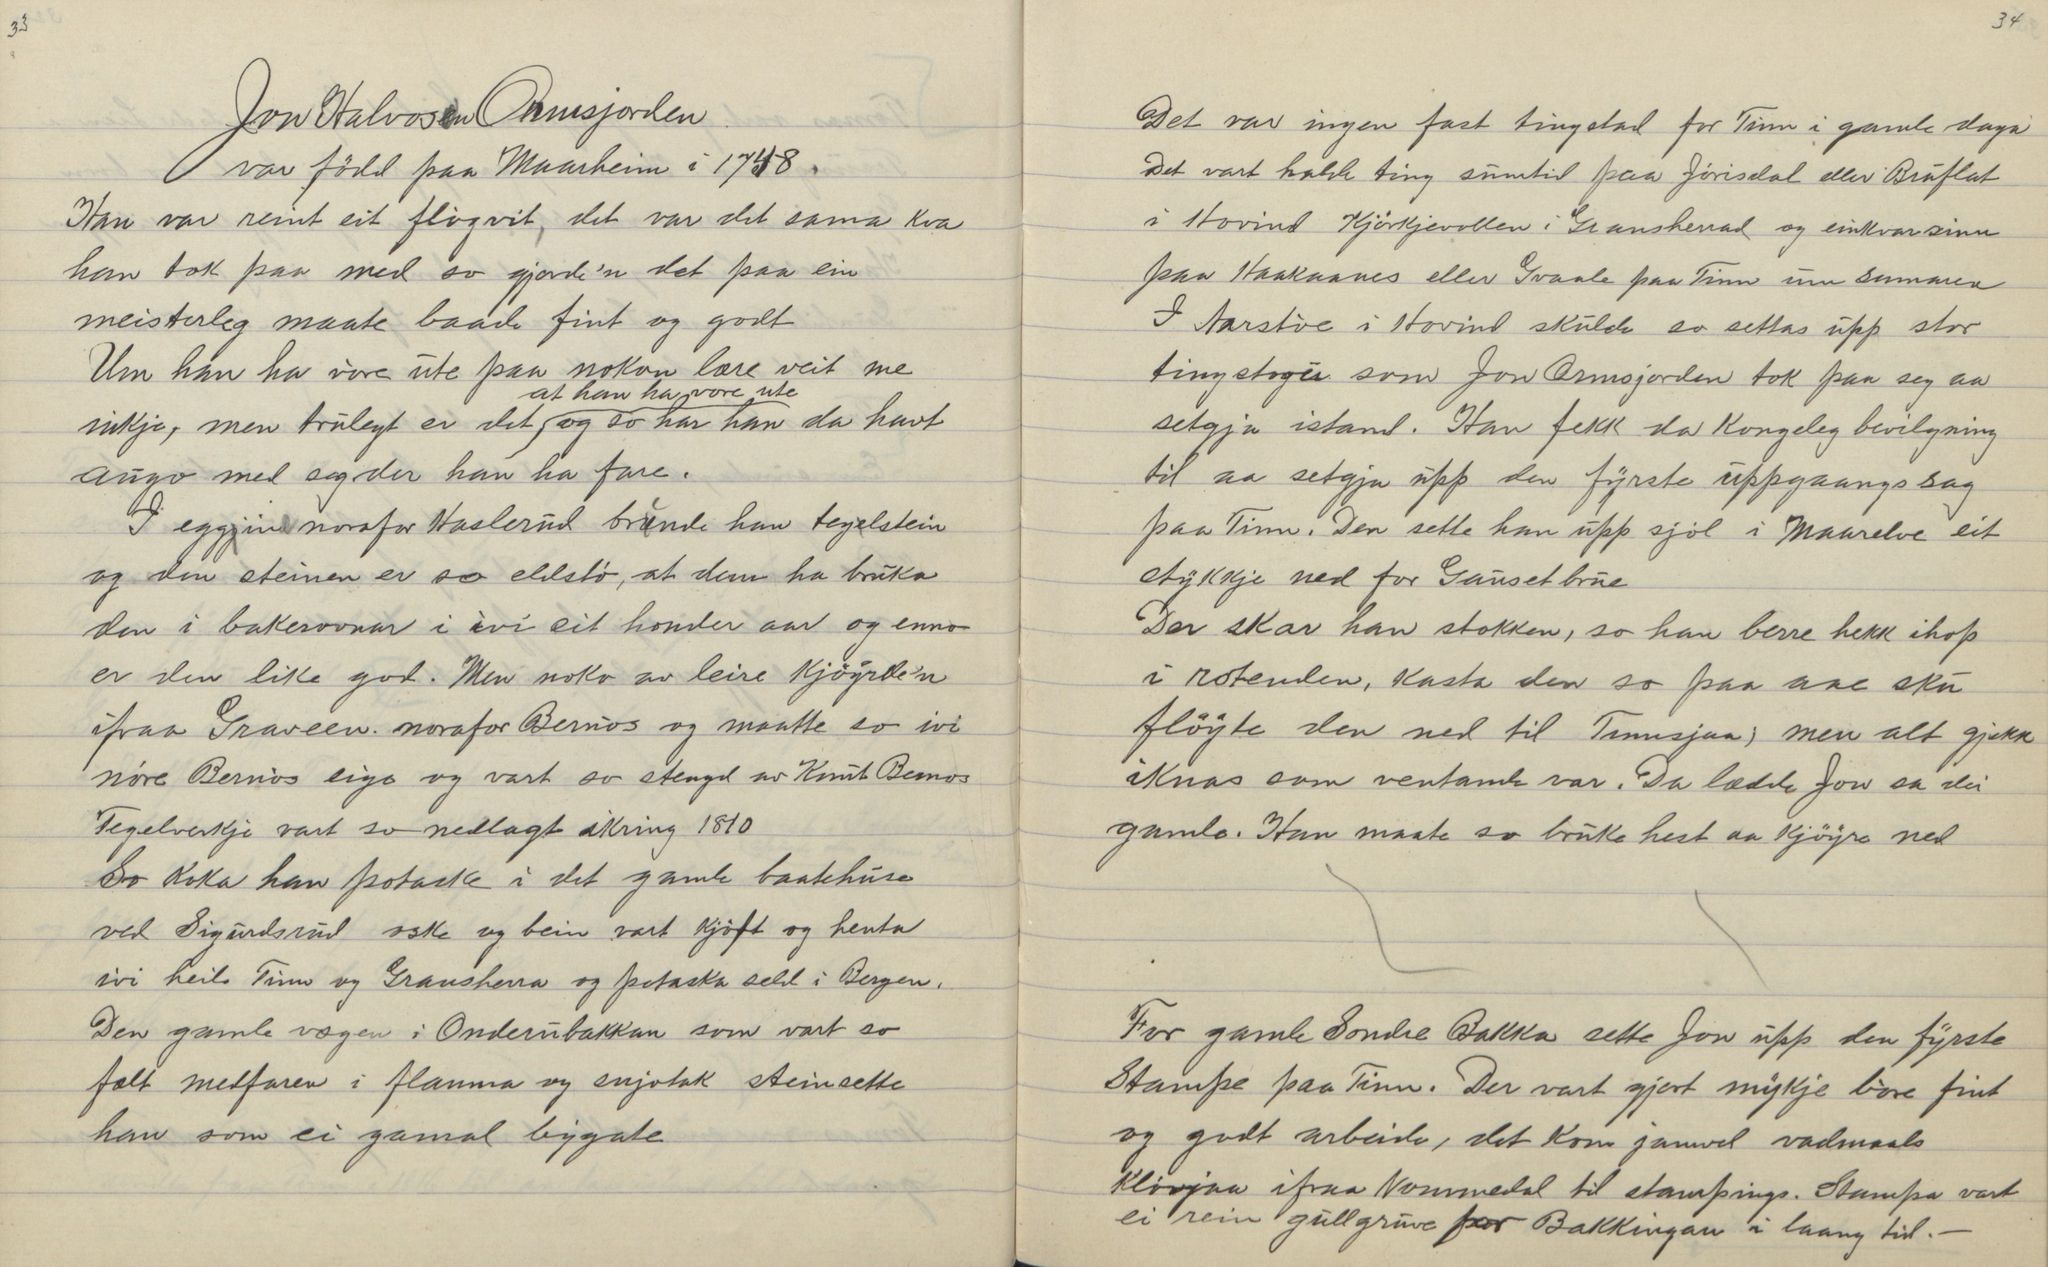 33
Jon Halvosen Ormsjorden
var född paa Maarheim i 1748.
Han var reint eit flogvit, det var det sama kva
han tok paa med so gjorde'n det paa ein
meisterleg maate baade fint og godt
Um han ha vore ute paa nokon lære veit me
at han ha vore ute
inkje, men truleyt er det, og so har han da havt
augo med seg der han ha fare.
I eggjine norafor Haslerud brende han tegelstein
og den steinen er so eldstö, at dem ha bruka
den i bakerovnar i ivi eit honder aar og enno
er den like god. Men noko av leire kjöyrde'n
ifraa Graveen norafor Bernos og maatte so ivi
nöre Bernos eige og vart so stengd av Knut Bernos
Tegelverkje vart so nedlagt ikring 1810
So koka han potaske i det gamle baatehuse
ved Sigurdsrud oske og bein vart kjöft og henta
ivi heile Tinn og Gransherra og potaska seld i Bergen.
Den gamle vægen i Onderubakkan som vart so
fælt medfaren i flamma og snjotak steinsette
han som ei gamal bygate
34
Det var ingen fast tingstad for Tinn i gamle daga
Det vart halde ting sumtid paa Jörisdal eller Bruflat
i Hovind Kjörkjevollen i Gransherrad og einkvarsinn
paa Haakaanes eller Gvaale paa Tinn um sumaren
I Aarstöe i Hovind skulde so settas upp stor
tingstogu som Jon Ormsjorden tok paa seg aa
setgja istand. Han fekk da Kongeleg bevilgning
til aa setgja upp den fyrste uppgaangssag
paa Tinn. Den sette han upp sjöl i Maarelve eit
stykkje ned for Gausetbrue
Der skar han stokken, so han berre hekk ihop
i rotenden, kasta den so paa aae sku
flöyte den ned til Tinnsjaa; men alt gjekk
iknas som ventande var. Da lædde Jon sa dei
gamle. Han maate so bruke hest aa kjöyre ned
For gamle Sondre Bakka sette Jon upp den fyrste
Stampe paa Tinn. Der vart gjort mykje böre fint
og godt arbeide, det kom jamvel vadmaals
klövjaa ifraa Nummedal til stampings. Stampa vart
ei rein gullgruve for Bakkingan i laang tid. —